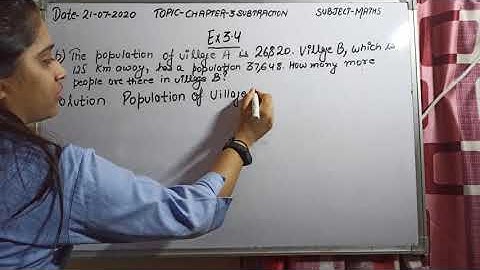 Date- 21-07-2020 TOPIC-CHAPTER-3 SUBTRACTION SUBJECT-MATHS
Ex 3.4
b) The population of village A is 26,820. Village B, which is
125 km away, has a population 37,648. How many more
people are there in village B?
olution Population of Village